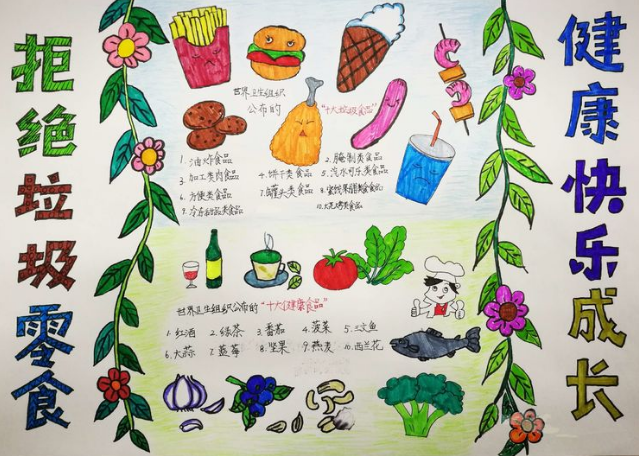 拒绝垃圾零食
健康快乐成长
世界卫生组织
公布的"十大垃圾食品"
1. 油炸食品
2. 腌制类食品
3. 加工类肉食品
4. 饼干类食品
5. 汽水可乐类食品
6. 方便类食品
7. 罐头类食品
8. 蜜饯果脯类食品
9. 冷冻甜品类食品
10. 烧烤类食品
世界卫生组织公布的"十大健康食品"
1. 红酒 2. 绿茶 3. 番茄 4. 菠菜 5. 三文鱼
6. 大蒜 7. 蓝莓 8. 坚果 9. 燕麦 10. 西兰花